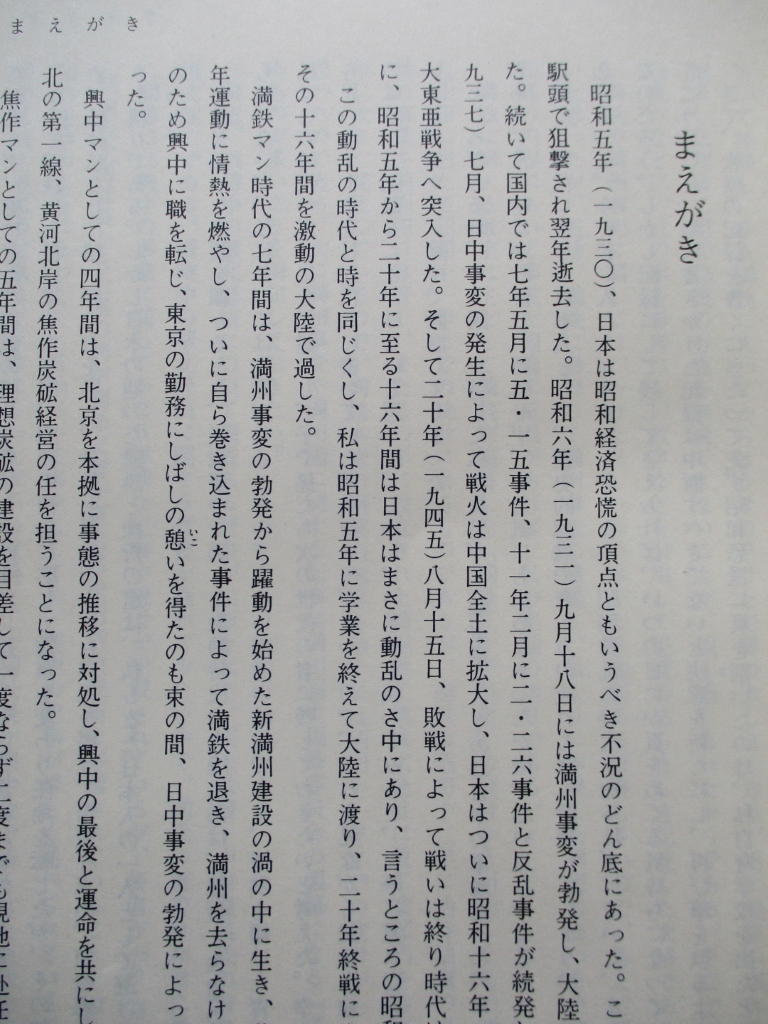 まえがき
まえがき
昭和五年（一九三〇）、日本は昭和経済恐慌の頂点ともいうべき不況のどん底にあった。こ
駅頭で狙撃され翌年逝去した。昭和六年（一九三一）九月十八日には満州事変が勃発し、大陸
た。続いて国内では七年五月に五・一五事件、十一年二月に二・二六事件と反乱事件が続発し
九三七）七月、日中事変の発生によって戦火は中国全土に拡大し、日本はついに昭和十六年
大東亜戦争へ突入した。そして二十年（一九四五）八月十五日、敗戦によって戦いは終り時代は
に、昭和五年から二十年に至る十六年間は日本はまさに動乱のさ中にあり、言うところの昭和
この動乱の時代と時を同じくし、私は昭和五年に学業を終えて大陸に渡り、二十年終戦に
その十六年間を激動の大陸で過した。
満鉄マン時代の七年間は、満州事変の勃発から躍動を始めた新満州建設の渦の中に生き、
年運動に情熱を燃やし、ついに自ら巻き込まれた事件によって満鉄を退き、満州を去らなけ
のため興中に職を転じ、東京の勤務にしばしの憩いを得たのも束の間、日中事変の勃発によっ
いこ
った。
興中マンとしての四年間は、北京を本拠に事態の推移に対処し、興中の最後と運命を共にし
北の第一線、黄河北岸の焦作炭砿経営の任を担うことになった。
焦作マンとしての五年間は、理想炭砿の建設を目差して一度ならず二度までも現地に赴任